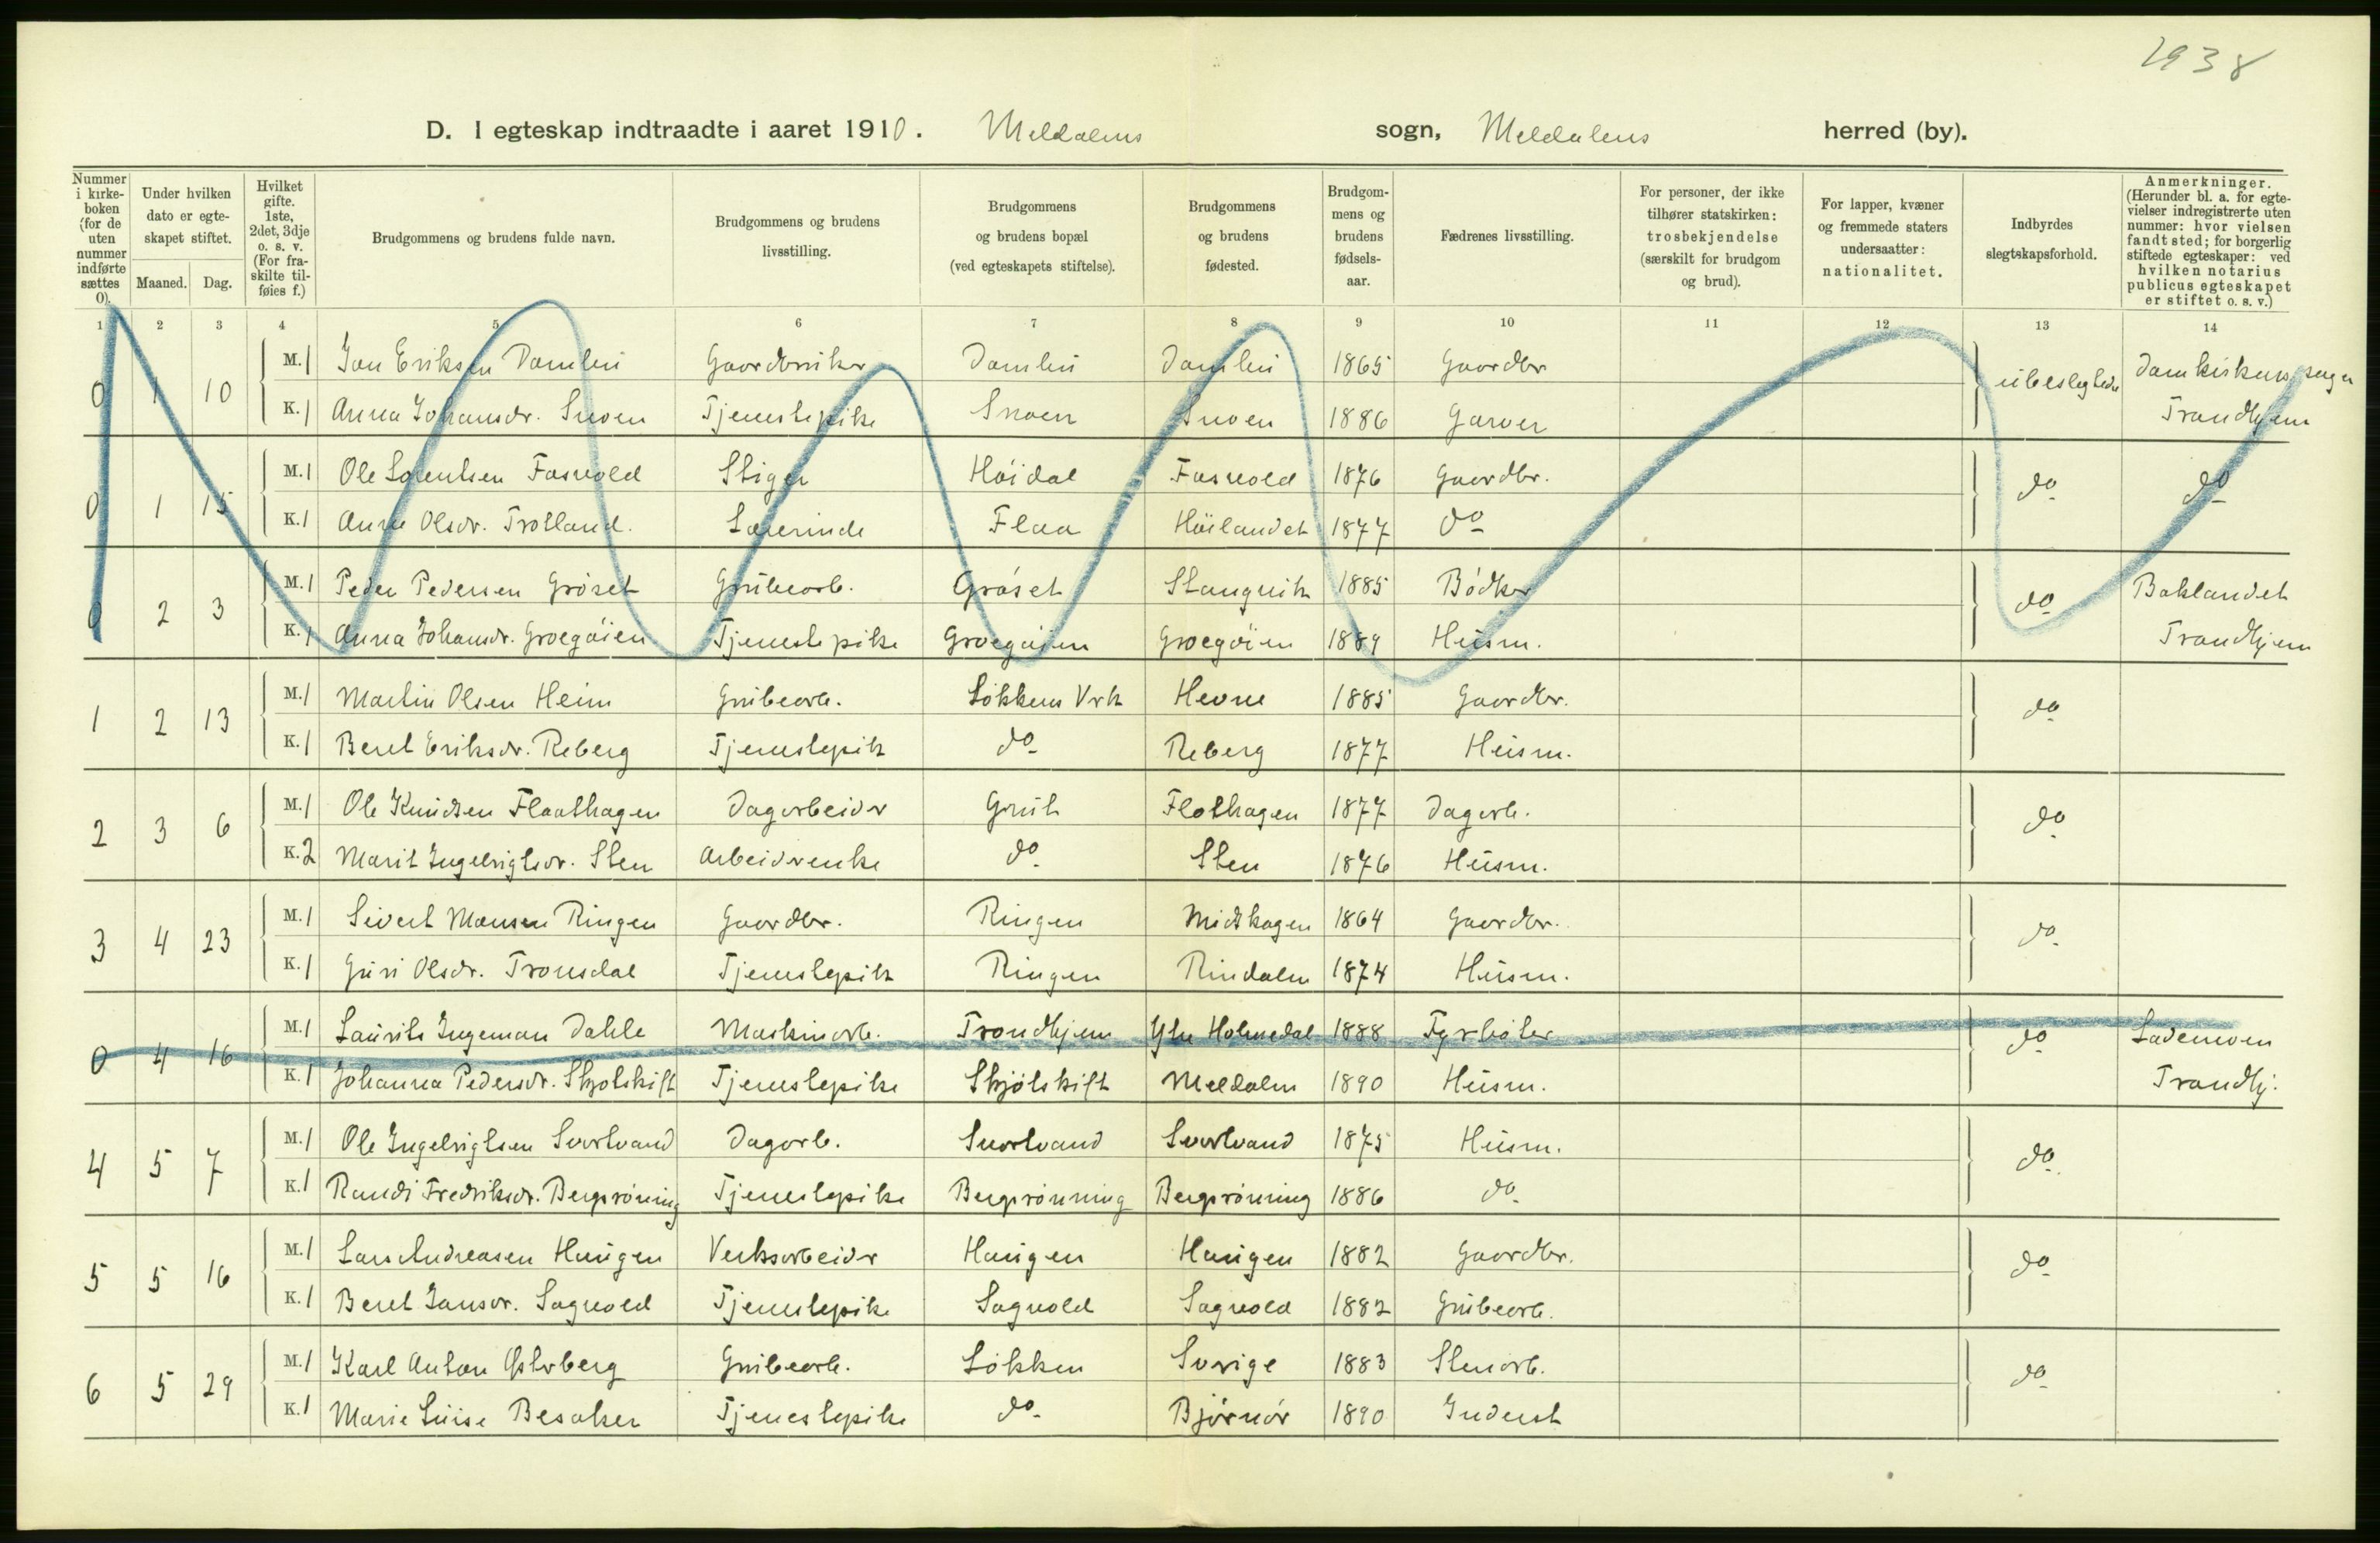 2938
D. I egteskap indtraadte i aaret 1910. Meldalens sogn, Meldalens herred (by).
Nummer i kirkeboken (for de uten nummer indførte sættes 0).
Under hvilken dato er egteskapet stiftet.
Maaned. Dag.
Hvilket gifte. 1ste, 2det, 3dje o. s. v. (For fraskilte tilføies f.)
Brudgommens og brudens fulde navn.
Brudgommens og brudens livsstilling.
Brudgommens og brudens bopæl (ved egteskapets stiftelse).
Brudgommens og brudens fødested.
Brudgommens og brudens fødselsaar.
Fædrenes livsstilling.
For personer, der ikke tilhører statskirken: trosbekjendelse (særskilt for brudgom og brud).
For lapper, kvæner og fremmede staters undersaatter: nationalitet.
Indbyrdes slegtskapsforhold.
Anmerkninger. (Herunder bl. a. for egtevielser indregistrerte uten nummer: hvor vielsen fandt sted; for borgerlig stiftede egteskaper: ved hvilken notarius publicus egteskapet er stiftet o. s. v.)
1 2 3 4 5 6 7 8 9 10 11 12 13 14
0 1 10 M. 1 Jon Eriksen Damlien Gaardbruker Damlien Damlien 1865 Gaardbr ubeslegtede Domkirkens sogn
K. 1 Anna Johansdr. Snoen Tjenestepike Snoen Snoen 1886 Garver Trondhjem
0 1 15 M. 1 Ole Lorentsen Fosvold Stiger Høidal Fosvold 1876 Gaardbr. do do
K. 1 Anne Olsdr. Trotland. Lærerinde Flaa Høilandet 1877 do
0 2 3 M. 1 Peder Pedersen Grøset Grubearb. Grøset Stangvik 1885 Bødker do Baklandet
K. 1 Anna Johansdr. Groegøien Tjenestepike Groegøien Groegøien 1889 Husm. Trondhjem
1 2 13 M. 1 Martin Olsen Heim Grubearb. Løkkens Vrk Hevne 1885 Gaardbr. do
K. 1 Beret Eriksdr. Reberg Tjenestepik do Reberg 1877 Husm.
2 3 6 M. 1 Ole Knudsen Flaathagen Dagarbeider Grut Flothagen 1877 Dagarb. do
K. 2 Marit Ingebrigtsdr. Sten Arbeiderenke do Sten 1876 Husm.
3 4 23 M. 1 Sivert Monsen Ringen Gaardbr. Ringen Midthagen 1864 Gaardbr. do
K. 1 Guri Olsdr. Tronsdal Tjenestepik Ringen Rindalen 1874 Husm.
0 4 16 M. 1 Laurits Ingeman Dahle Maskinarb. Trondhjem Ytre Holmedal 1888 Fyrbøter do Lademoen
K. 1 Johanna Pedersdr. Skjølskift Tjenestepike Skjølskift Meldalen 1890 Husm. Trondhj.
4 5 7 M. 1 Ole Ingebrigtsen Svortvand Dagarb. Svortvand Svortvand 1875 Husm. do
K. 1 Randi Fredriksdr. Bergsrønning Tjenestepike Bergsrønning Bergsrønning 1886 do
5 5 16 M. 1 Lars Andreasen Haugen Verksarbeider Haugen Haugen 1882 Gaardbr. do
K. 1 Beret Jansdr. Sagvold Tjenestepike Sagvold Sagvold 1882 Grubearb.
6 5 29 M. 1 Karl Anton Østerberg Grubearb. Løkken Sverige 1883 Stenarb. do
K. 1 Marie Luise Besaker Tjenestepike do Bjørnør 1890 Inderst